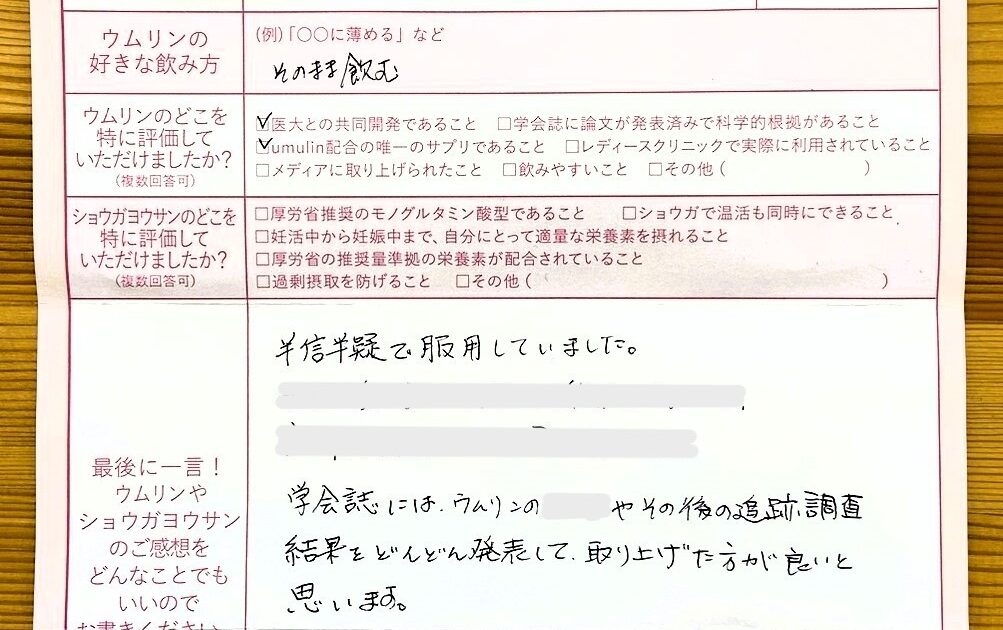 ウムリンの
好きな飲み方
(例)「〇〇に薄める」など
そのまま飲む
ウムリンのどこを
特に評価して
いただけましたか?
(複数回答可)
□医大との共同開発であること □学会誌に論文が発表済みで科学的根拠があること
□umulin配合の唯一のサプリであること □レディースクリニックで実際に利用されていること
□メディアに取り上げられたこと □飲みやすいこと □その他( )
ショウガヨウサンのどこを
特に評価して
いただけましたか?
(複数回答可)
□厚労省推奨のモノグルタミン酸型であること □ショウガで温活も同時にできること
□妊活中から妊娠中まで、自分にとって適量な栄養素を摂れること
□厚労省の推奨量準拠の栄養素が配合されていること
□過剰摂取を防げること □その他( )
最後に一言!
ウムリンや
ショウガヨウサン
のご感想を
どんなことでも
いいので
お書きください
半信半疑で服用していました。
学会誌には、ウムリンの
やその後の追跡調査
結果をどんどん発表して、取り上げた方が良いと
思います。